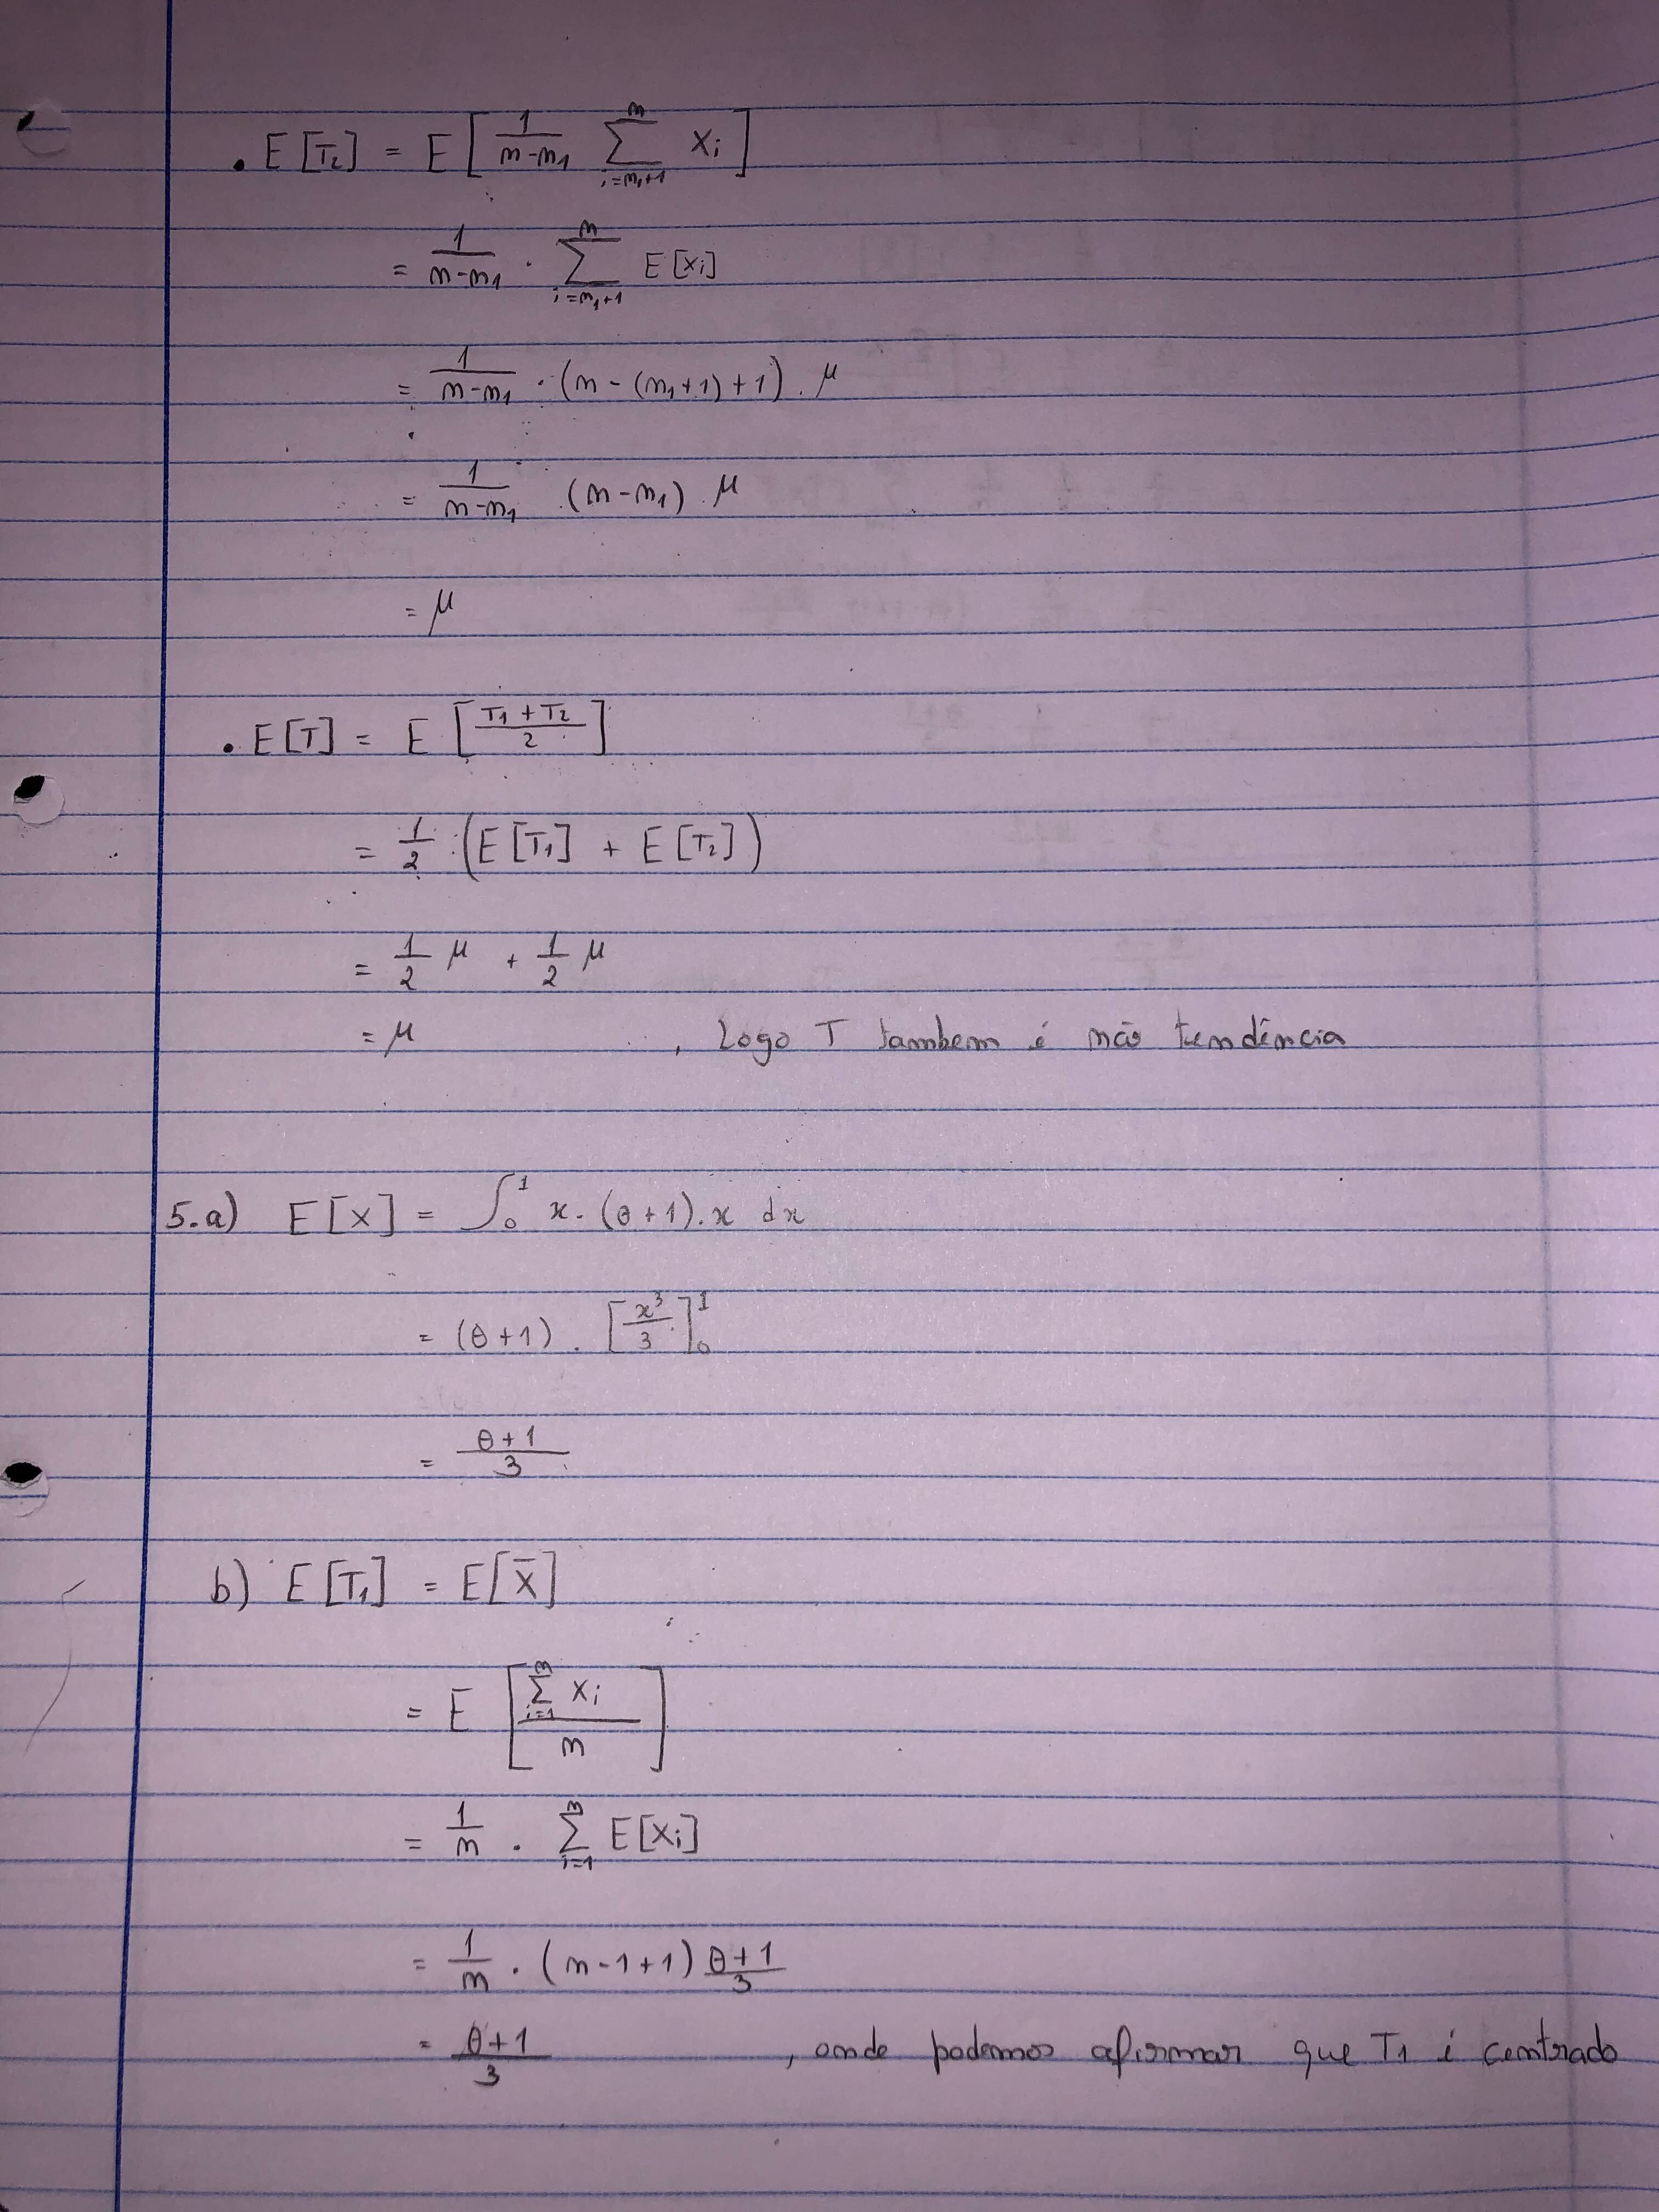 • E[T₂] = E[ \frac{1}{n-n₁} \sum_{i=n₁+1}^{n} Xᵢ ]
= \frac{1}{n-n₁} · \sum_{i=n₁+1}^{n} E[Xᵢ]
= \frac{1}{n-n₁} · (n - (n₁+1) + 1) . μ
= \frac{1}{n-n₁} . (n-n₁) . μ
= μ
• E[T] = E[ \frac{T₁ + T₂}{2} ]
= \frac{1}{2} . (E[T₁] + E[T₂])
= \frac{1}{2} μ + \frac{1}{2} μ
= μ , Logo T tambem é não tendência
5.a) E[X] = \int_0^1 x . (θ+1) . x dx
= (θ+1) . [ \frac{x³}{3} ]_0^1
= \frac{θ+1}{3}
b) E[T₁] = E[X̄]
= E[ \frac{\sum_{i=1}^{n} Xᵢ}{n} ]
= \frac{1}{n} . \sum_{i=1}^{n} E[Xᵢ]
= \frac{1}{n} . (n-1+1) \frac{θ+1}{3}
= \frac{θ+1}{3} , onde podemos afirmar que T₁ é centrado